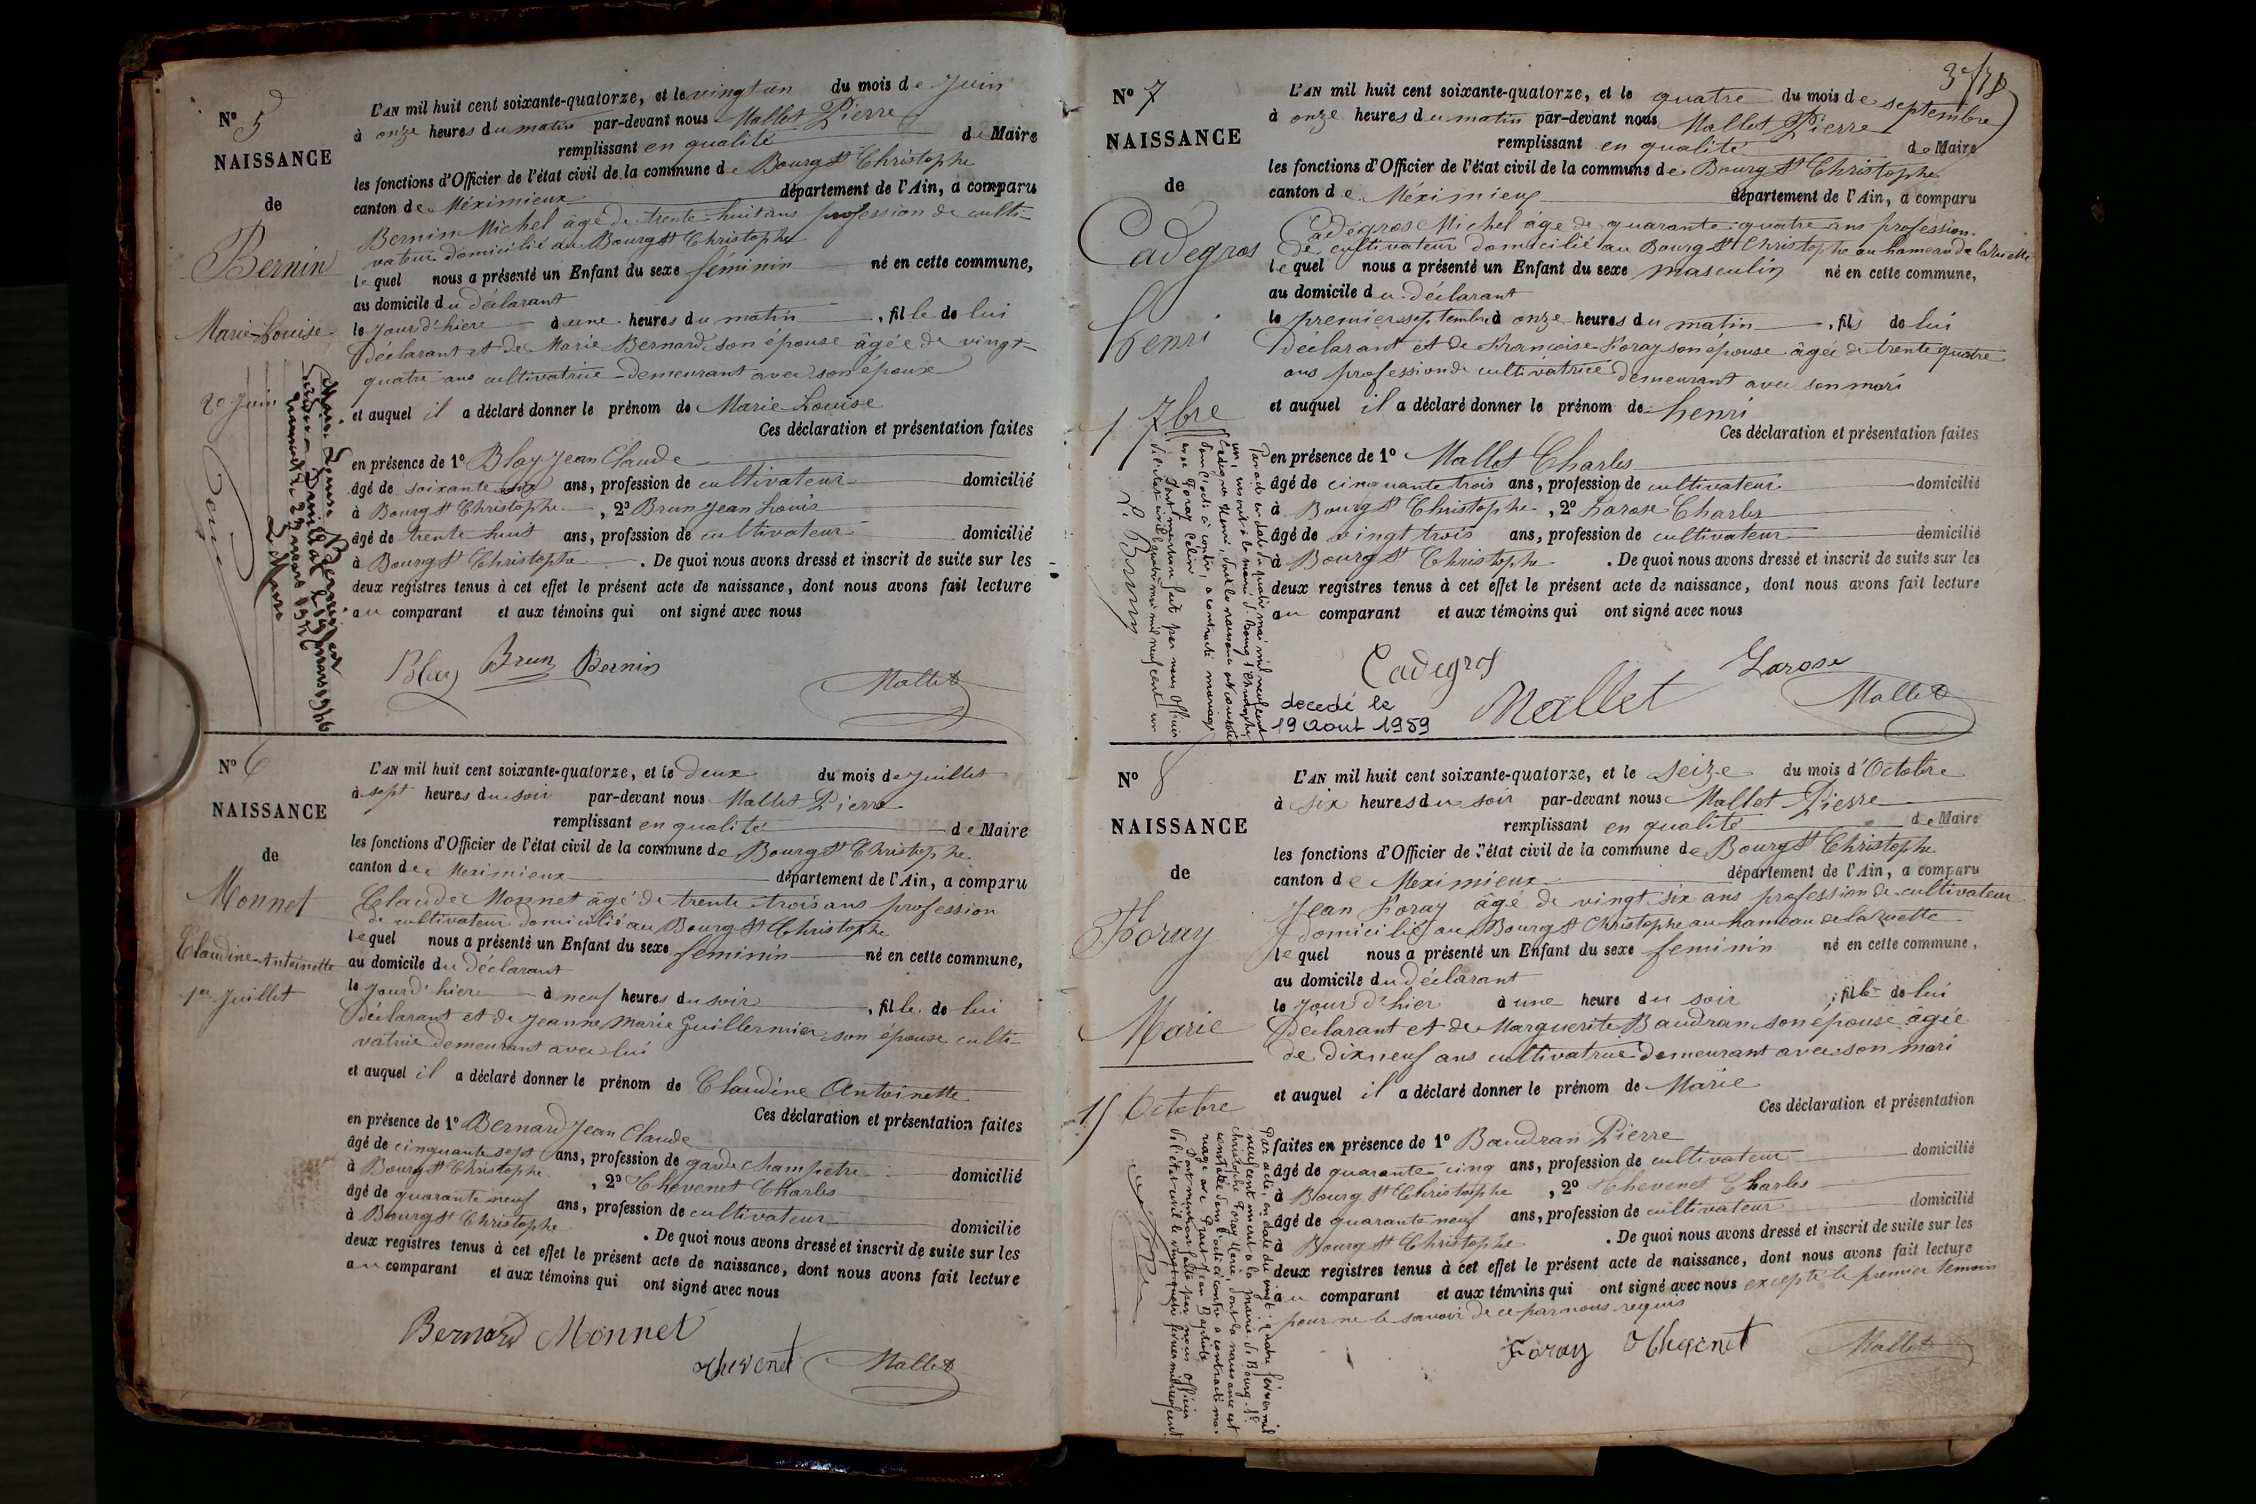 N° 5
NAISSANCE
de
Bernin
Marie-Louise
20 Juin
L'AN mil huit cent soixante-quatorze, et le vingt un du mois de Juin
à onze heures du matin par-devant nous Mallet Pierre
remplissant en qualité de Maire
les fonctions d'Officier de l'état civil de la commune de Bourg St Christophe
canton de Méximieux département de l'Ain, a comparu
Bernin Michel âgé de trente-huit ans profession de culti-
vateur domicilié au Bourg St Christophe
lequel nous a présenté un Enfant du sexe féminin né en cette commune,
au domicile du déclarant
le jour d'hier à une heures du matin, fille de lui
déclarant et de Marie Bernard son épouse âgée de vingt-
quatre ans cultivatrice demeurant avec son époux
et auquel il a déclaré donner le prénom de Marie Louise
Ces déclaration et présentation faites
en présence de 1° Blay Jean Claude
âgé de soixante ans, profession de cultivateur domicilié
à Bourg St Christophe, 2° Brun Jean Louis
âgé de trente huit ans, profession de cultivateur domicilié
à Bourg St Christophe. De quoi nous avons dressé et inscrit de suite sur les
deux registres tenus à cet effet le présent acte de naissance, dont nous avons fait lecture
au comparant et aux témoins qui ont signé avec nous
Blay Brun Bernin Mallet
Marie Louise Bernin est
le 19 mars 1946
29 mars 1946
Le Maire
N° 6
NAISSANCE
de
Monnet
Claudine-Antoinette
1er Juillet
L'AN mil huit cent soixante-quatorze, et le deux du mois de Juillet
à sept heures du soir par-devant nous Mallet Pierre
remplissant en qualité de Maire
les fonctions d'Officier de l'état civil de la commune de Bourg St Christophe
canton de Meximieux département de l'Ain, a comparu
Claude Monnet âgé de trente-trois ans profession
de cultivateur domicilié au Bourg St Christophe
lequel nous a présenté un Enfant du sexe feminin né en cette commune,
au domicile du déclarant
le jour d'hier à neuf heures du soir, fille de lui
déclarant et de Jeanne Marie Guillermier son épouse culti-
vatrice demeurant avec lui
et auquel il a déclaré donner le prénom de Claudine Antoinette
Ces déclaration et présentation faites
en présence de 1° Bernard Jean Claude
âgé de cinquante sept ans, profession de garde champetre domicilié
à Bourg St Christophe, 2° Chevenet Charles
âgé de quarante neuf ans, profession de cultivateur domicilié
à Bourg St Christophe. De quoi nous avons dressé et inscrit de suite sur les
deux registres tenus à cet effet le présent acte de naissance, dont nous avons fait lecture
au comparant et aux témoins qui ont signé avec nous
Bernard Monnet
Chevenet Mallet
N° 7
NAISSANCE
de
Cadegros
henri
1 7bre
L'AN mil huit cent soixante-quatorze, et le quatre du mois de septembre
à onze heures du matin par-devant nous Mallet Pierre
remplissant en qualité de Maire
les fonctions d'Officier de l'état civil de la commune de Bourg St Christophe
canton de Méximieux département de l'Ain, a comparu
Cadegros Michel âgé de quarante-quatre ans profession
de cultivateur domicilié au Bourg St Christophe au hameau de la ruette
lequel nous a présenté un Enfant du sexe masculin né en cette commune,
au domicile du déclarant
le premier septembre à onze heures du matin, fils de lui
déclarant et de Francoise Foray son épouse âgée de trente quatre
ans profession de cultivatrice demeurant avec son mari
et auquel il a déclaré donner le prénom de henri
Ces déclaration et présentation faites
en présence de 1° Mallet Charles
âgé de cinquante trois ans, profession de cultivateur domicilié
à Bourg St Christophe, 2° Larose Charles
âgé de vingt trois ans, profession de cultivateur domicilié
à Bourg St Christophe. De quoi nous avons dressé et inscrit de suite sur les
deux registres tenus à cet effet le présent acte de naissance, dont nous avons fait lecture
au comparant et aux témoins qui ont signé avec nous
Cadegros Larose
Mallet Mallet
decedé le
19 Aout 1959
Par acte en date du quatre mai mil neuf cent
un, inscrit à la mairie de Bourg St Christophe,
Cadegros Henri, dont la naissance est constatée
dans l'acte ci contre, a contracté mariage
avec Foray Céline
Dont mention faite par nous officier
de l'état-civil le quatre mai mil neuf cent un
P. Bernin
N° 8
NAISSANCE
de
Foray
Marie
15 Octobre
L'AN mil huit cent soixante-quatorze, et le seize du mois d'Octobre
à six heures du soir par-devant nous Mallet Pierre
remplissant en qualité de Maire
les fonctions d'Officier de l'état civil de la commune de Bourg St Christophe
canton de Meximieux département de l'Ain, a comparu
Jean Foray âgé de vingt six ans profession de cultivateur
domicilié au Bourg St Christophe au hameau de la ruette
lequel nous a présenté un Enfant du sexe feminin né en cette commune,
au domicile du déclarant
le jour d'hier à une heure du soir, fille de lui
Déclarant et de Marguerite Baudran son épouse âgée
de dix neuf ans cultivatrice demeurant avec son mari
et auquel il a déclaré donner le prénom de Marie
Ces déclaration et présentation
faites en présence de 1° Baudran Pierre
âgé de quarante-cinq ans, profession de cultivateur domicilié
à Bourg St Christophe, 2° Chevenet Charles
âgé de quarante neuf ans, profession de cultivateur domicilié
à Bourg St Christophe. De quoi nous avons dressé et inscrit de suite sur les
deux registres tenus à cet effet le présent acte de naissance, dont nous avons fait lecture
au comparant et aux témoins qui ont signé avec nous excepté le premier temoin
pour ne le savoir de ce par nous requis
Foray Chevenet Mallet
Par acte, en date du vingt-quatre février mil
neuf cent inscrit à la mairie de Bourg-St-
Christophe Foray Marie, dont la naissance est
constatée dans l'acte ci contre a contracté ma-
riage avec Jean Baptiste
Dont mention faite par nous officier
de l'état-civil le vingt quatre février mil neuf cent